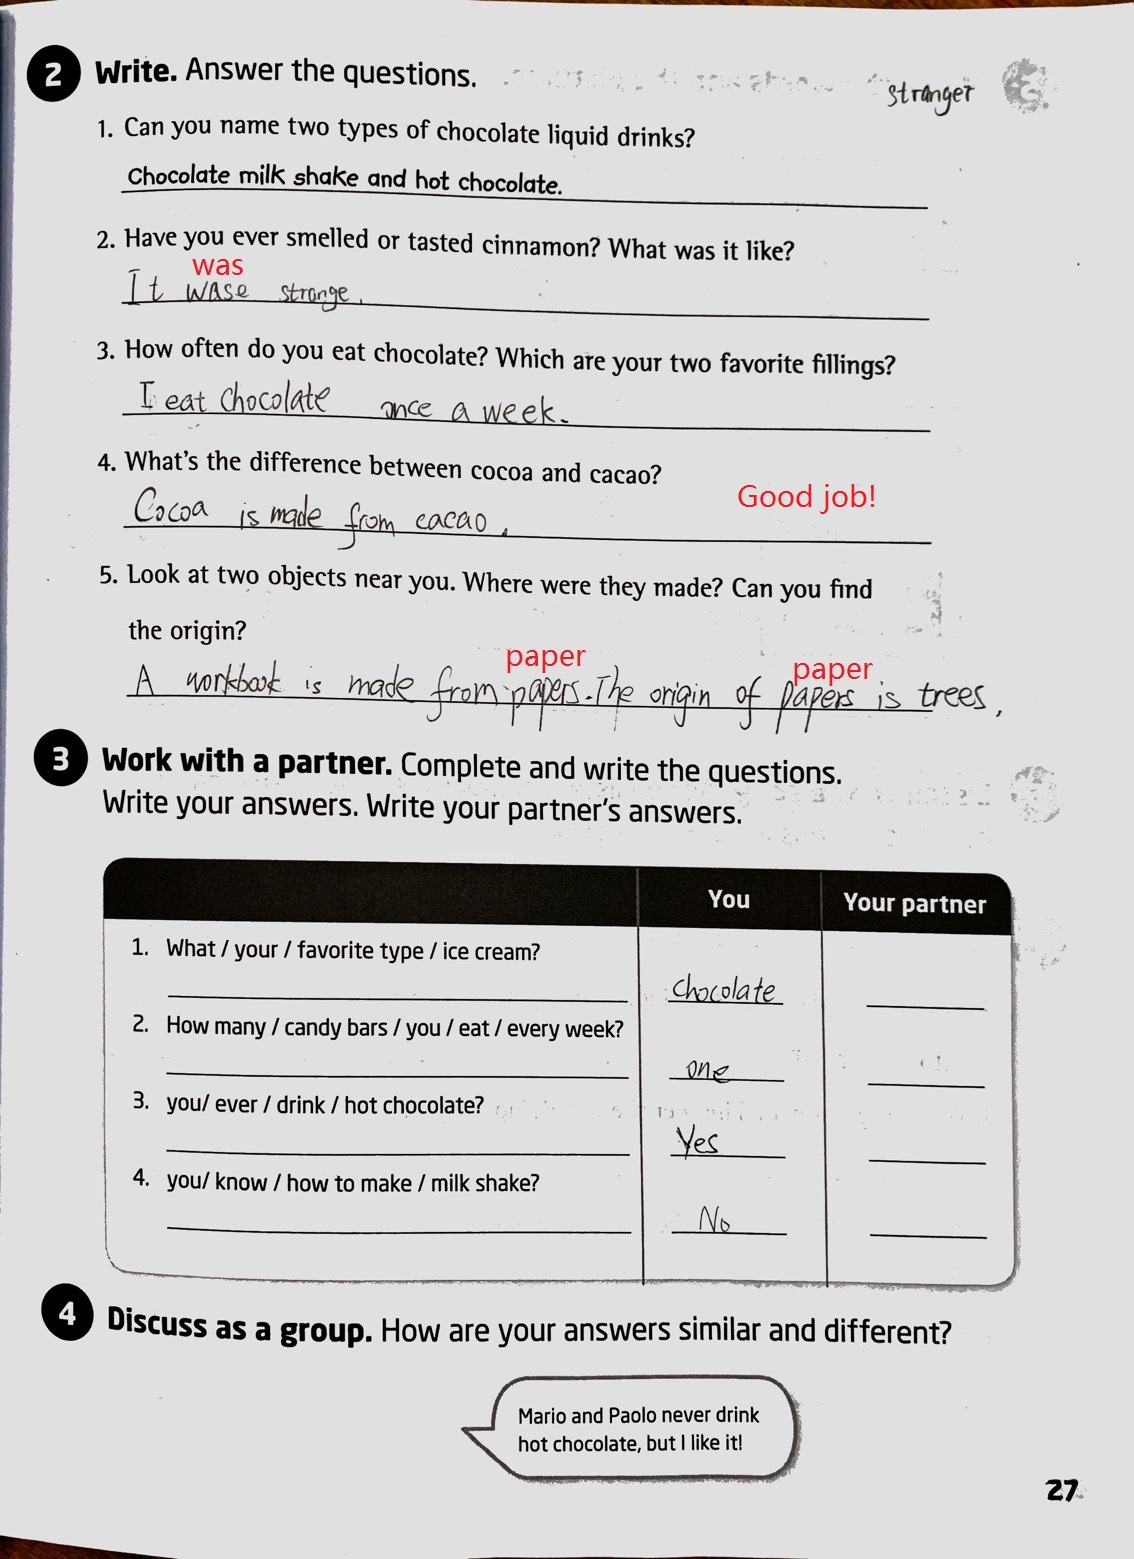 2 Write. Answer the questions.
stranger
1. Can you name two types of chocolate liquid drinks?
Chocolate milk shake and hot chocolate.
2. Have you ever smelled or tasted cinnamon? What was it like?
was
It wase strange.
3. How often do you eat chocolate? Which are your two favorite fillings?
I eat chocolate once a week.
4. What's the difference between cocoa and cacao?
Good job!
Cocoa is made from cacao.
5. Look at two objects near you. Where were they made? Can you find
the origin?
paper paper
A workbook is made from papers. The origin of papers is trees,
3 Work with a partner. Complete and write the questions.
Write your answers. Write your partner's answers.
You Your partner
1. What / your / favorite type / ice cream?
chocolate
2. How many / candy bars / you / eat / every week?
one
3. you/ ever / drink / hot chocolate?
Yes
4. you/ know / how to make / milk shake?
No
4 Discuss as a group. How are your answers similar and different?
Mario and Paolo never drink
hot chocolate, but I like it!
27